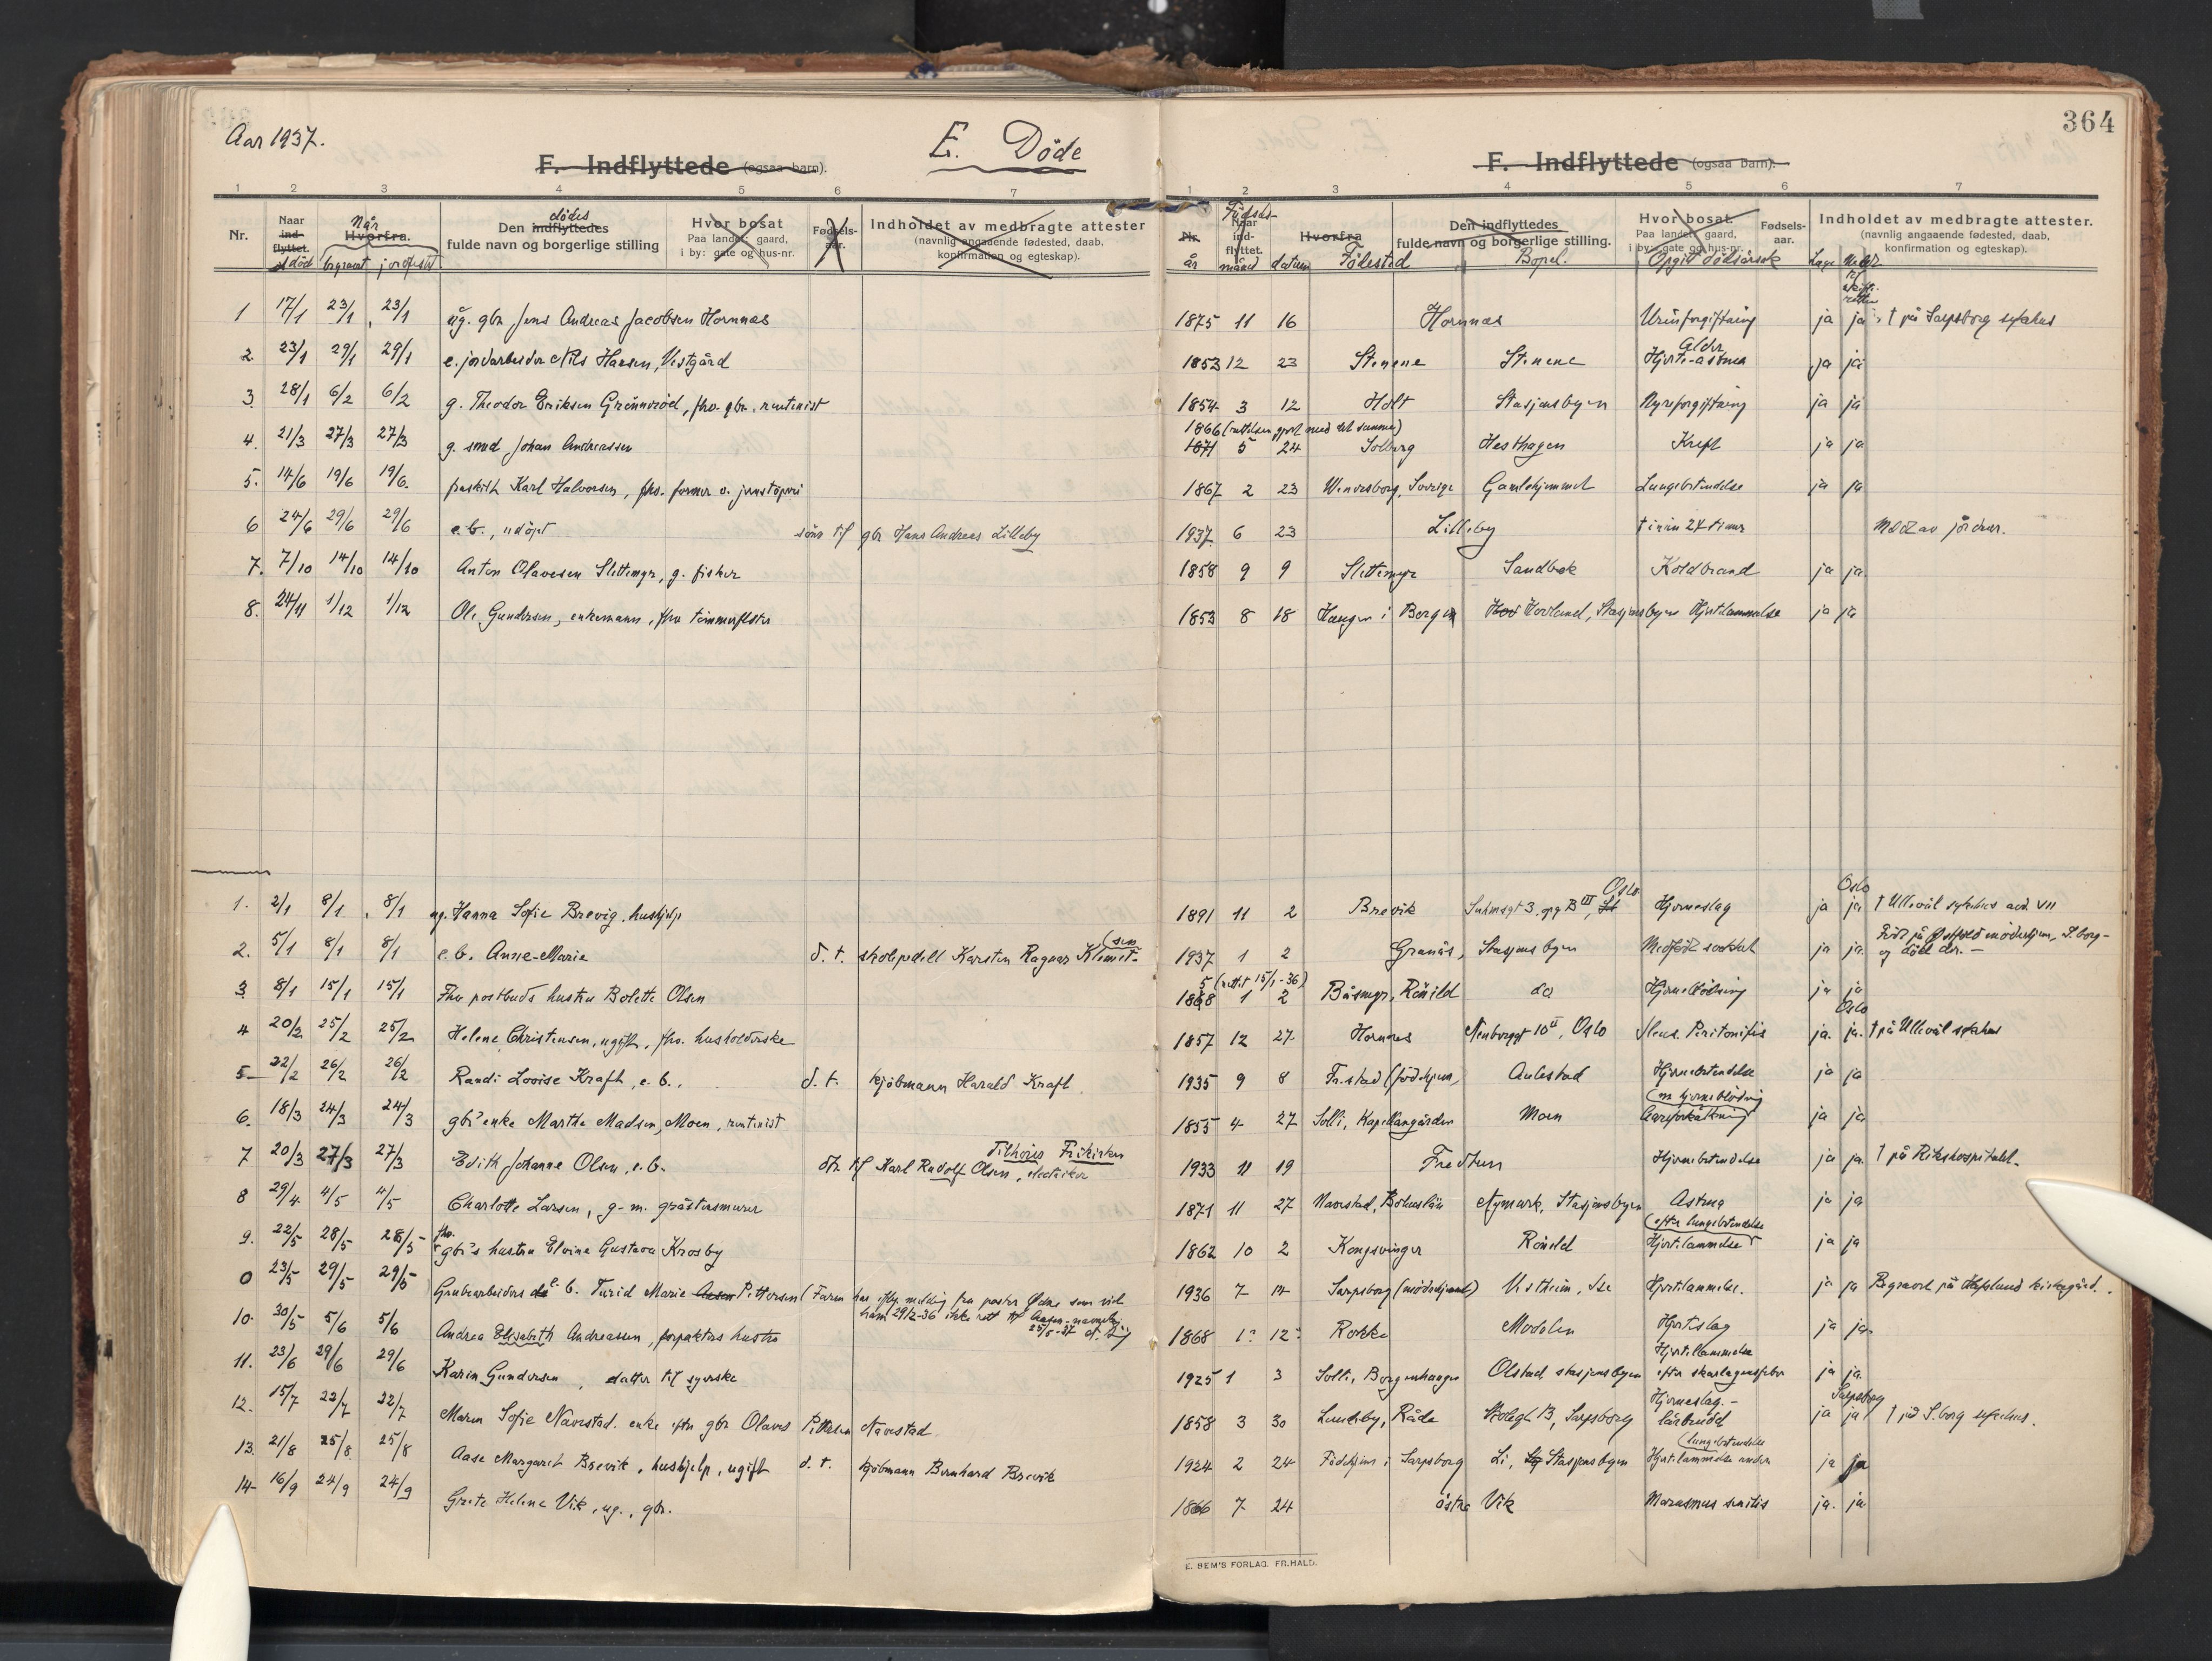 364
Aar 1937.
E. Döde
F. Indflyttede (ogsaa barn).
F. Indflyttede (ogsaa barn).
1 2 3 4 5 6 7
1 2 3 4 5 6 7
Nr.
Naar ind-flyttet. död
Når Hvorfra. begravet jordfestet
Den indflyttedes dödes fulde navn og borgerlige stilling
Hvor bosat Paa landet: gaard, i by: gate og hus-nr.
Fødsels-aar.
Indholdet av medbragte attester (navnlig angaaende fødested, daab, konfirmation og egteskap).
Nr. år
Födsels- Naar ind-flyttet. måned datum
Hvorfra Födested
Den indflyttedes fulde navn og borgerlige stilling. Bopel.
Hvor bosat. Paa landet: gaard, i by: gate og hus-nr. Opgitt dödsårsak
Fødsels-aar.
Indholdet av medbragte attester. (navnlig angaaende fødested, daab, konfirmation og egteskap).
1 17/1 23/1 23/1 ug. gbr Jens Andreas Jacobsen Hornnæs 1875 11 16 Hornnæs Urinforgiftning ja ja † på Sarpsborg sykehus
2. 23/1 29/1 29/1 e. jordarbeider Nils Hansen, Vestgård 1853 12 23 Stenene Stenene Alder Hjerte-astma ja ja
3. 28/1 6/2 6/2 g. Theodor Eriksen Grönneröd, fhv. gbr., rentenist 1854 3 12 Holt Stasjonsbyen Nyreforgiftning ja ja
1866 (rettelsen gjort med det samme)
4. 21/3 27/3 27/3 g. smed Johan Andreassen 1871 5 24 Solberg Hesthagen Kreft ja ja
5. 14/6 19/6 19/6. fraskilt Karl Halvorsen, fhv. former v. jernstöperi 1867 2 23 Wenersborg, Sverige Gamlehjemmet Lungebetendelse ja ja
6 24/6 29/6 29/6 e.b., udöpt sönn til gbr Hans Andreas Lilleby 1937. 6 23 Lilleby † innen 24 timer Meld av jordmor.
7. 7/10 14/10 14/10 Anton Olavesen Slettemyr, g. fisker 1858 9 9 Slettemyr Sandbek Koldbrand ja ja
8. 24/11 1/12 1/12 Ole Gundersen, enkemann, fhv tömmerfløter 1853 8 18 Haugen i Borgen Hovland, Stasjonsbyen Hjertelammelse ja ja
1. 2/1 8/1 8/1 ug. Hanna Sofie Brevig, hushjelp 1891 11 2 Brevik Suhmsgt 3, opg B III, Oslo Hjerneslag ja ja Oslo † Ullevål sykehus avd. VII
2. 5/1 8/1 8/1 e.b. Anne-Marie d. t. skolepedell Karsten Ragnar Klemet-(sen 1937 1 2 Granås, Stasjonsbyen Medfödt svakhet ja ja. Född på Östfold mödrehjem, S.borg - og död der. -
5 (rettet 15/1-36)
3 8/1 15/1 15/1 Fhv postbuds hustru Bolette Olsen 1868 1 2 Båsmyr, Röåild do Hjerneblödning ja ja
4 20/2 25/2 25/2 Helene Christensen, ugift, fhv. husholderske 1857 12 27 Hornnes Neubergt 10 II, Oslo Ileus. Peritonitis ja. ja. Oslo † på Ullevål sykehus
5 22/2 26/2 26/2 Randi Lovise Kraft, e.b., d. t. kjöbmann Harald Kraft 1935 9 8 Fr.stad (födehjem, Aulestad Hjernebetendelse ja ja
6. 18/3 24/3 24/3 gbr's enke Marthe Madsen, Moen, rentenist 1855 4 27 Solli, Kapellangården Moen Aareforkalkning (m hjerneblödning ja ja
7 20/3 27/3 27/3 Edith Johanne Olsen, e.b. dtr til Karl Rudolf Olsen, elektriker Tilhörer Frikirken 1933 11 19 Fredtun Hjernebetendelse ja ja. † på Rikshospitalet.
8 29/4 4/5 4/5 Charlotte Larsen, g. m. gråstensmurer 1871 11 27 Naverstad, Bohuslän Nymark, Stasjonsbyen Astma ja ja
9. 22/5 28/5 28/5 fhv. gbr's hustru Elvine Gustava Krosby 1862 10 2 Kongsvinger Röåild Hjertelammelse (efter lungebetendelse ja ja
0 23/5 29/5 29/5 Grubearbeiders e. b. Turid Marie Aasen Pettersen (Faren har ifölge melding fra pastor som vid 1936 7 14 Sarpsborg (mödrehjemmet) Vestheim, Ise Hjertelammelse. ja ja Begravet på Hafslund kirkegård.
ham 29/12-36 ikke rett til Aasen-navnet.
25/5-37
10. 30/5 5/6 5/6 Andrea Elisabeth Andreassen, forpakters hustru 1868 1 12 Rokke Modalen Hjerteslag ja ja
11. 23/6 29/6 29/6 Karin Gundersen, datter til syerske 1925 1 3 Solli, Borgenhaugen Olstad stasjonsbyen Hjertelammelse efter skarlagensfeber ja ja.
12. 15/7 22/7 22/7 Maren Sofie Navestad. enke efter gbr Olaves Pettersen Navestad 1858 3 30 Lundeby, Råde Skolegt 13, Sarpsborg Hjerneslag - lårbrudd ja ja Sarpsborg † på S.borg sykehus.
13. 21/8 25/8 25/8 Aase Margaret Brevik, hushjelp, ugift d. t. kjöbmann Bernhard Brevik 1924 2 24 Födehjem i Sarpsborg Li, Stasjonsbyen Hjertelammelse under (lungebetendelse ja ja
14 16/9 24/9 24/9 Grete Helene Vik, ug., gbr. 1866 7 24 östre Vik Marasmus senilis ja. ja
E. SEM'S FORLAG. FR.HALD.